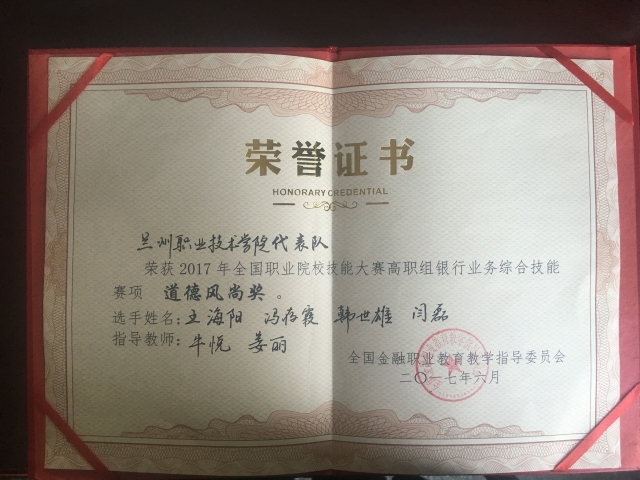 荣誉证书
HONORARY CREDENTIAL
兰州职业技术学院代表队
荣获2017年全国职业院校技能大赛高职组银行业务综合技能
赛项 道德风尚奖。
选手姓名:王海阳 冯存霞 韩世雄 闫磊
指导教师:牛悦 娄丽
全国金融职业教育教学指导委员会
二〇一七年六月